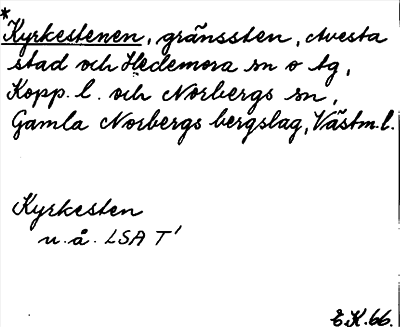 *
Kyrkestenen, gränssten, Avesta
stad och Hedemora sn o tg,
Kopp. l. och Norbergs sn,
Gamla Norbergs bergslag, Västm. l.
Kyrkesten
u. å. LSA T'
E.K. 66.